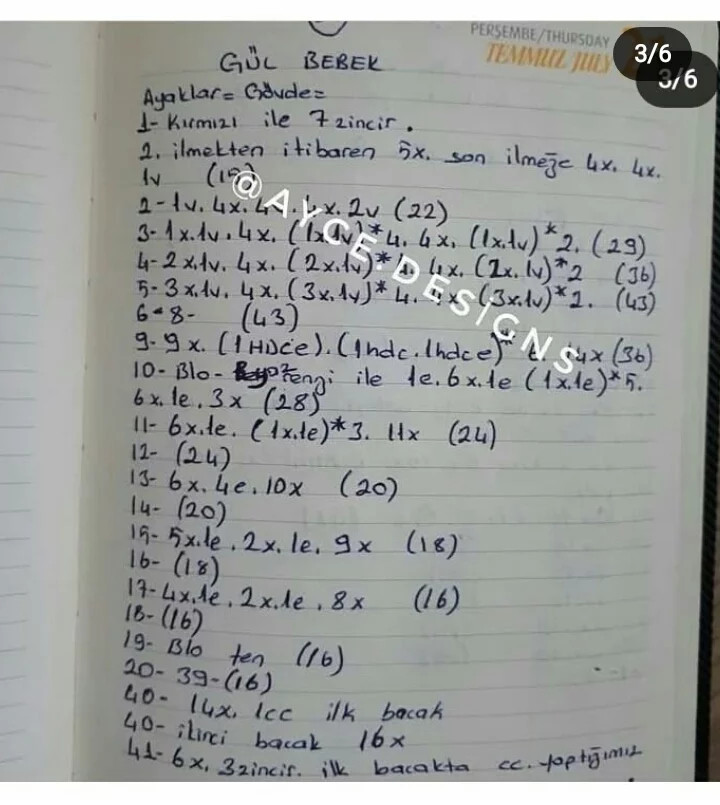 PERŞEMBE/THURSDAY
TEMMUZ JULY
3/6
3/6
GÜL BEBEK
Ayaklar= Gövde=
1- Kırmızı ile 7 zincir.
2. ilmekten itibaren 5x. son ilmeğe 4x. 4x.
1v (15)
@AYCE.DESIGNS
2- 1v. 4x. 4v. 4x. 2v (22)
3- 1x.1v. 4x. (1x.1v)*4. 4x. (1x.1v)*2. (29)
4- 2x.1v. 4x. (2x.1v)*4. 4x. (2x.1v)*2 (36)
5- 3x.1v. 4x. (3x.1v)*4. 4x. (3x.1v)*2. (43)
6-8- (43)
9- 9x. (1HDCe). (1hdc.1hdce)* 14x (36)
10- Blo- rengi ile 1e. 6x.1e (1x.1e)*5.
6x.1e. 3x (28)
11- 6x.1e. (1x.1e)*3. 11x (24)
12- (24)
13- 6x. 4e. 10x (20)
14- (20)
15- 5x.1e. 2x. 1e. 9x (18)
16- (18)
17- 4x.1e. 2x.1e. 8x (16)
18- (16)
19- Blo ten (16)
20- 39- (16)
40- 14x. 1cc ilk bacak
40- ikinci bacak 16x
41- 6x. 3zincir. ilk bacakta cc. yaptığımız